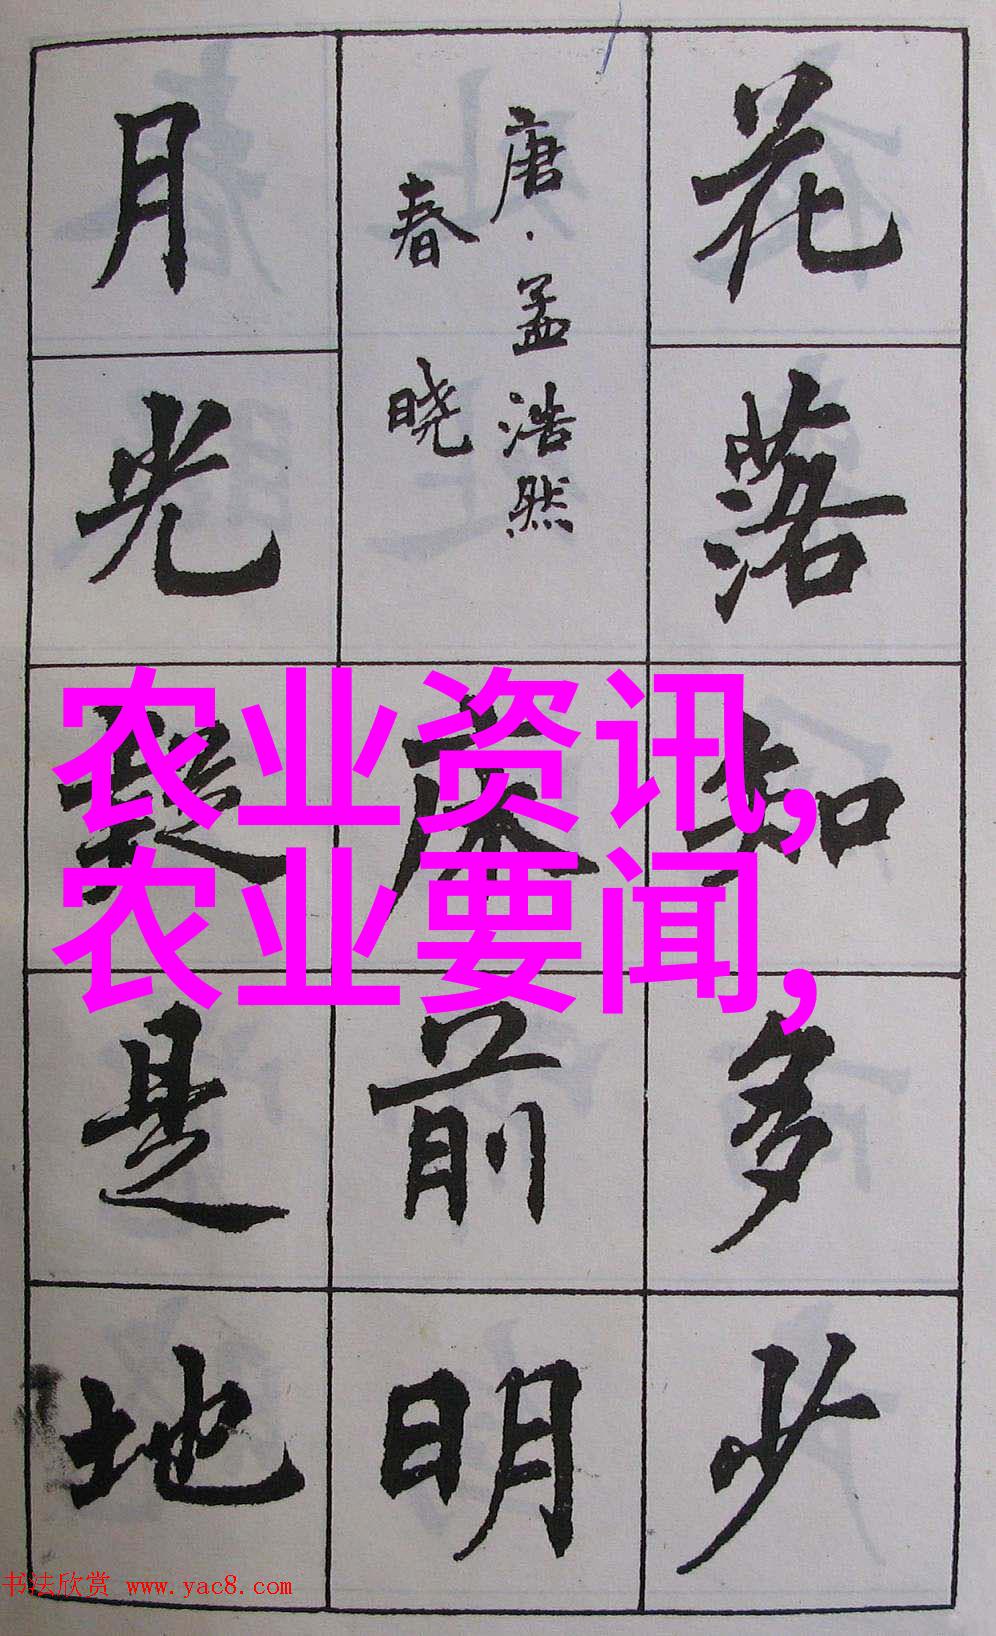 花落知多少
唐·孟浩然
春晓
床前明
月光疑是地
农业资讯,
农业要闻,
书法欣赏 www.yac8.com